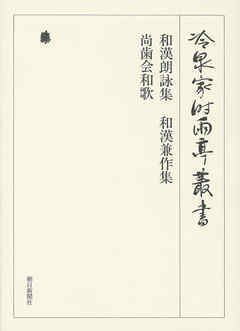 冷泉家時雨亭叢書
和漢朗詠集　和漢兼作集
尚歯会和歌
朝日新聞社